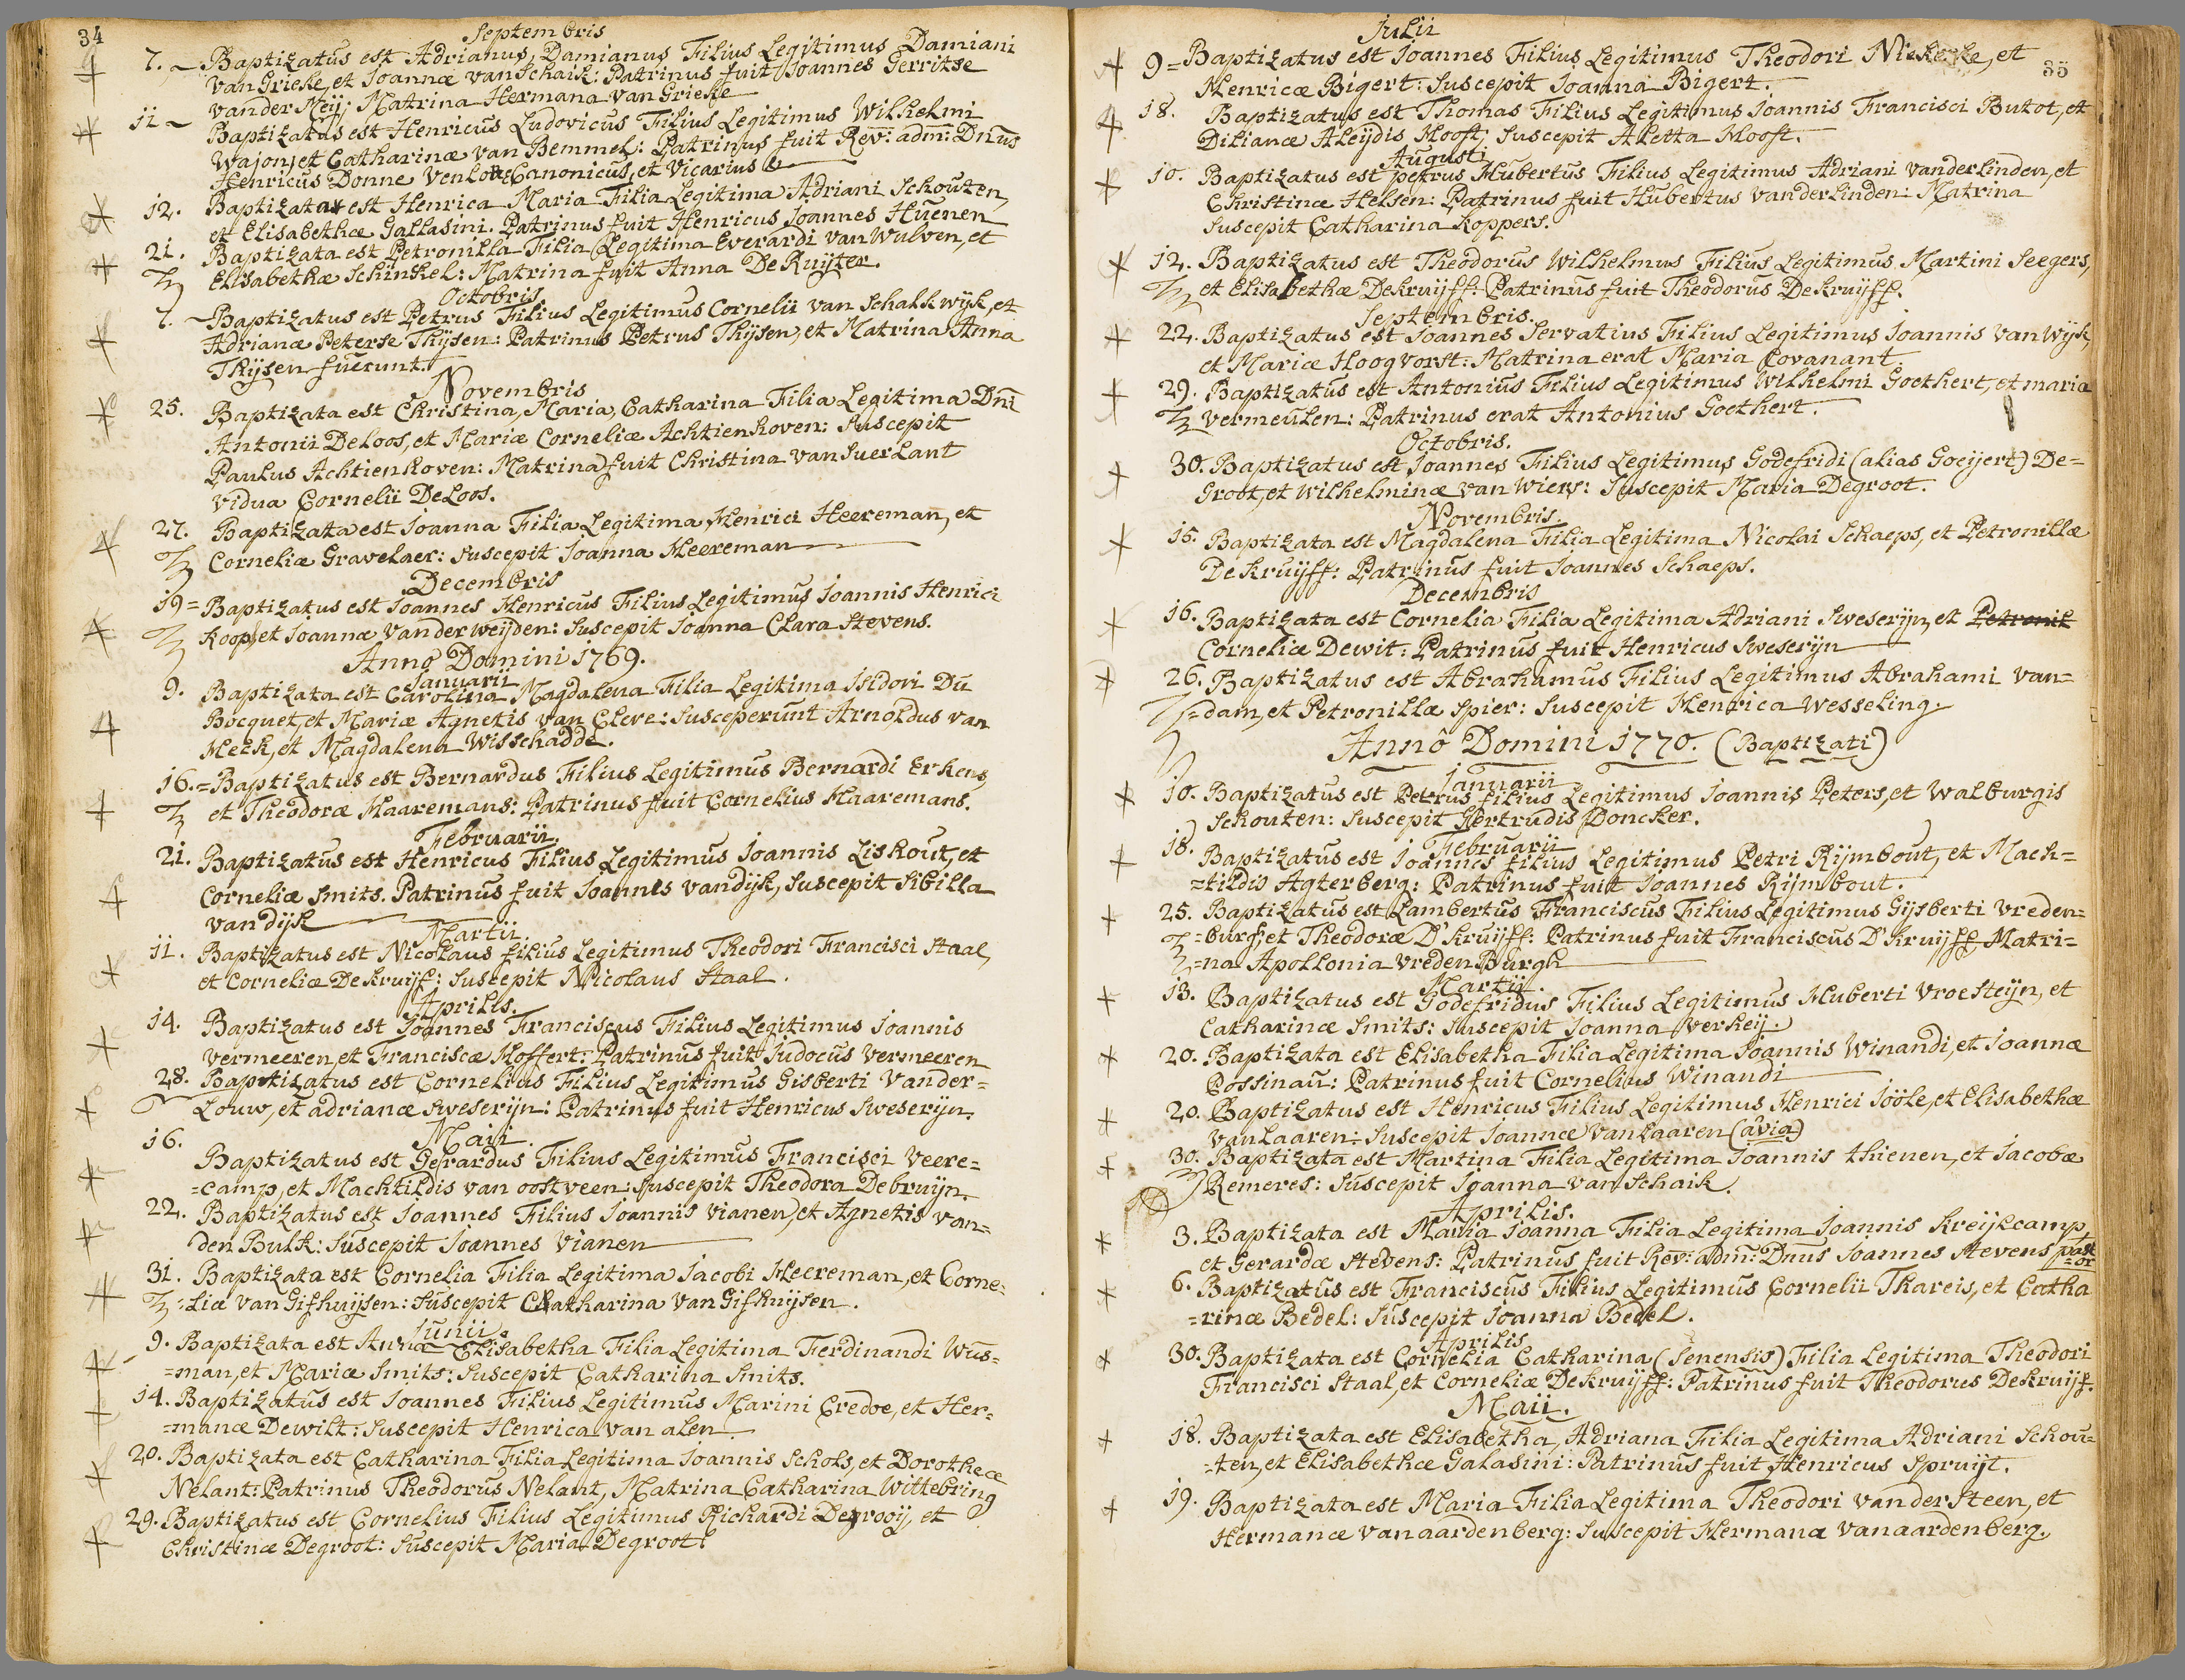 34
Septembris
7. Baptizatus est Adrianus, Damianus Filius Legitimus Damiani
van Grieke, et Joannæ van Schaik: Patrinus fuit Joannes Gerritse
vander Meij: Matrina Hermana van Grieke
11 Baptizatus est Henricus Ludovicus Filius Legitimus Wilhelmi
Wajon, et Catharinæ van Bemmel: Patrinus fuit Rev: adm: Dnus
Henricus Donne Venlon: Canonicus, et Vicarius
12. Baptizata est Henrica Maria Filia Legitima Adriani Schouten,
et Elisabethæ Gallasini. Patrinus fuit Henricus Joannes Huenen
21. Baptizata est Petronilla Filia Legitima Everardi van Wulven, et
Elisabethæ Schinkel: Matrina fuit Anna De Ruijter.
Octobris
7. Baptizatus est Petrus Filius Legitimus Cornelii van Schalkwijk, et
Adrianæ Peterse Thijsen: Patrinus Petrus Thijsen, et Matrina Anna
Thijsen fuerunt.
Novembris
25. Baptizata est Christina, Maria, Catharina Filia Legitima Dni
Antonii De Loos, et Mariæ Corneliæ Achtienhoven: Suscepit
Paulus Achtienhoven: Matrina fuit Christina van Suerlant
vidua Cornelii De Loos.
27. Baptizata est Joanna Filia Legitima Henrici Heereman, et
Corneliæ Gravelaer: Suscepit Joanna Heereman
Decembris
19 = Baptizatus est Joannes Henricus Filius Legitimus Joannis Henrici
Koop, et Joannæ vander weijden: Suscepit Joanna Clara Stevens.
Anno Domini 1769.
Januarii
9. Baptizata est Carolina Magdalena Filia Legitima Isidori Du
Bocquet, et Mariæ Agnetis van Cleve: Susceperunt Arnoldus van
Heek, et Magdalena Wisschadde.
16. = Baptizatus est Bernardus Filius Legitimus Bernardi Erkens,
et Theodoræ Haaremans: Patrinus fuit Cornelius Haaremans.
Februarii
21. Baptizatus est Henricus Filius Legitimus Joannis Liskout, et
Corneliæ Smits. Patrinus fuit Joannes vandijk, Suscepit Sibilla
vandijk
Martii.
11. Baptizatus est Nicolaus filius Legitimus Theodori Francisci Staal,
et Corneliæ De kruijf: Suscepit Nicolaus Staal.
Aprilis.
14. Baptizatus est Joannes Franciscus Filius Legitimus Joannis
vermeeren, et Franciscæ Hoffert: Patrinus fuit Judocus Vermeeren
28. Baptizatus est Cornelius Filius Legitimus Gisberti Vander=
Louw, et adrianæ Sweserijn: Patrinus fuit Henricus Sweserijn.
Maii.
16. Baptizatus est Gerardus Filius Legitimus Francisci Veere=
=camp, et Machtildis van oostveen: Suscepit Theodora Debruijn.
22. Baptizatus est Joannes Filius Joannis vianen, et Agnetis van=
den Bulk: Suscepit Joannes Vianen
31. Baptizata est Cornelia Filia Legitima Jacobi Heereman, et Corne=
:liæ van Gifhuijsen: Suscepit Chatharina van Gifhuijsen.
Junii.
9. Baptizata est Anna Elisabetha Filia Legitima Ferdinandi Wus=
=man, et Mariæ Smits: Suscepit Catharina Smits.
14. Baptizatus est Joannes Filius Legitimus Marini Credoe, et Her=
=manæ Dewilt: Suscepit Henrica van alen.
20. Baptizata est Catharina Filia Legitima Joannis Schols, et Dorotheæ
Nelant: Patrinus Theodorus Nelant, Matrina Catharina Wittebring
29. Baptizatus est Cornelius Filius Legitimus Richardi Degrooij, et
Christinæ Degroot: Suscepit Maria Degroot
35
Julii
9 = Baptizatus est Joannes Filius Legitimus Theodori, et
Henricæ Bigert: Suscepit Joanna Bigert.
18. Baptizatus est Thomas Filius Legitimus Joannis Francisci Butot, et
Dilianæ Aleijdis Hooft; Suscepit Aletta Hooft.
Augusti
10. Baptizatus est petrus Hubertus Filius Legitimus Adriani Vanderlinden, et
Christinæ Helsen: Patrinus fuit Hubertus Vanderlinden: Matrina
Suscepit Catharina Koppers.
12. Baptizatus est Theodorus Wilhelmus Filius Legitimus Martini Seegers,
et Elisabethæ Dekruijff: Patrinus fuit Theodorus Dekruijff.
Septembris.
22. Baptizatus est Joannes Servatius Filius Legitimus Joannis Van Wijk,
et Mariæ Hoogvorst: Matrina erat Maria Covanant
29. Baptizatus est Antonius Filius Legitimus Wilhelmi Goethert, et maria
Vermeulen: Patrinus erat Antonius Goethert.
Octobris.
30. Baptizatus est Joannes Filius Legitimus Godefridi (alias Goeijert) De=
Groot, et Wilhelminæ van Wiers: Suscepit Maria Degroot.
Novembris
15. Baptizata est Magdalena Filia Legitima Nicolai Schaeps, et Petronillæ
De kruijff: Patrinus fuit Joannes Schaeps.
Decembris
16. Baptizata est Cornelia Filia Legitima Adriani Sweserijn, et Petronil
Corneliæ Dewit: Patrinus fuit Henricus Sweserijn
26. Baptizatus est Abrahamus Filius Legitimus Abrahami van=
=dam, et Petronillæ Spier: Suscepit Henrica Wesseling.
Annô Domini 1770. (Baptizati)
Januarii
10. Baptizatus est Petrus filius Legitimus Joannis Peters, et Walburgis
Schouten: Suscepit Gertrudis Doncker.
Februarii
18. Baptizatus est Joannes filius Legitimus Petri Rijmbout, et Mach=
=tildis Agterberg: Patrinus fuit Joannes Rijmbout.
25. Baptizatus est Lambertus Franciscus Filius Legitimus Gijsberti Vreden=
=burg, et Theodoræ D'kruijff: Patrinus fuit Franciscus D'kruijff Matri=
=na Apollonia Vreden Burgh
Martii.
13. Baptizatus est Godefridus Filius Legitimus Huberti Vroesteijn, et
Catharinæ Smits: Suscepit Joanna Verkeij.
20. Baptizata est Elisabetha Filia Legitima Joannis Winandi, et Joannæ
Possinau: Patrinus fuit Cornelius Winandi
20. Baptizatus est Henricus Filius Legitimus Henrici Joöle, et Elisabethæ
Van Laaren: Suscepit Joannæ Van Laaren (avia)
30. Baptizata est Martina Filia Legitima Joannis thienen, et Jacobæ
Remeres: Suscepit Joanna van Schaik.
Aprilis.
3. Baptizata est Maria Joanna Filia Legitima Joannis kreijkcamp,
et Gerardæ Stevens: Patrinus fuit Rev: adm: Dnus Joannes Stevens past
=or
6. Baptizatus est Franciscus Filius Legitimus Cornelii Thareis, et Catha
=rinæ Bedel: Suscepit Joanna Bedel.
Aprilis
30. Baptizata est Cornelia Catharina (Senensis) Filia Legitima Theodori
Francisci Staal, et Corneliæ De kruijff: Patrinus fuit Theodorus De kruijf.
Maii.
18. Baptizata est Elisabetha, Adriana Filia Legitima Adriani Schou=
=ten, et Elisabethæ Galasini: Patrinus fuit Henricus Spruijt.
19. Baptizata est Maria Filia Legitima Theodori vander Steen, et
Hermanæ Vanaardenberg: Suscepit Hermana Vanaardenberg.